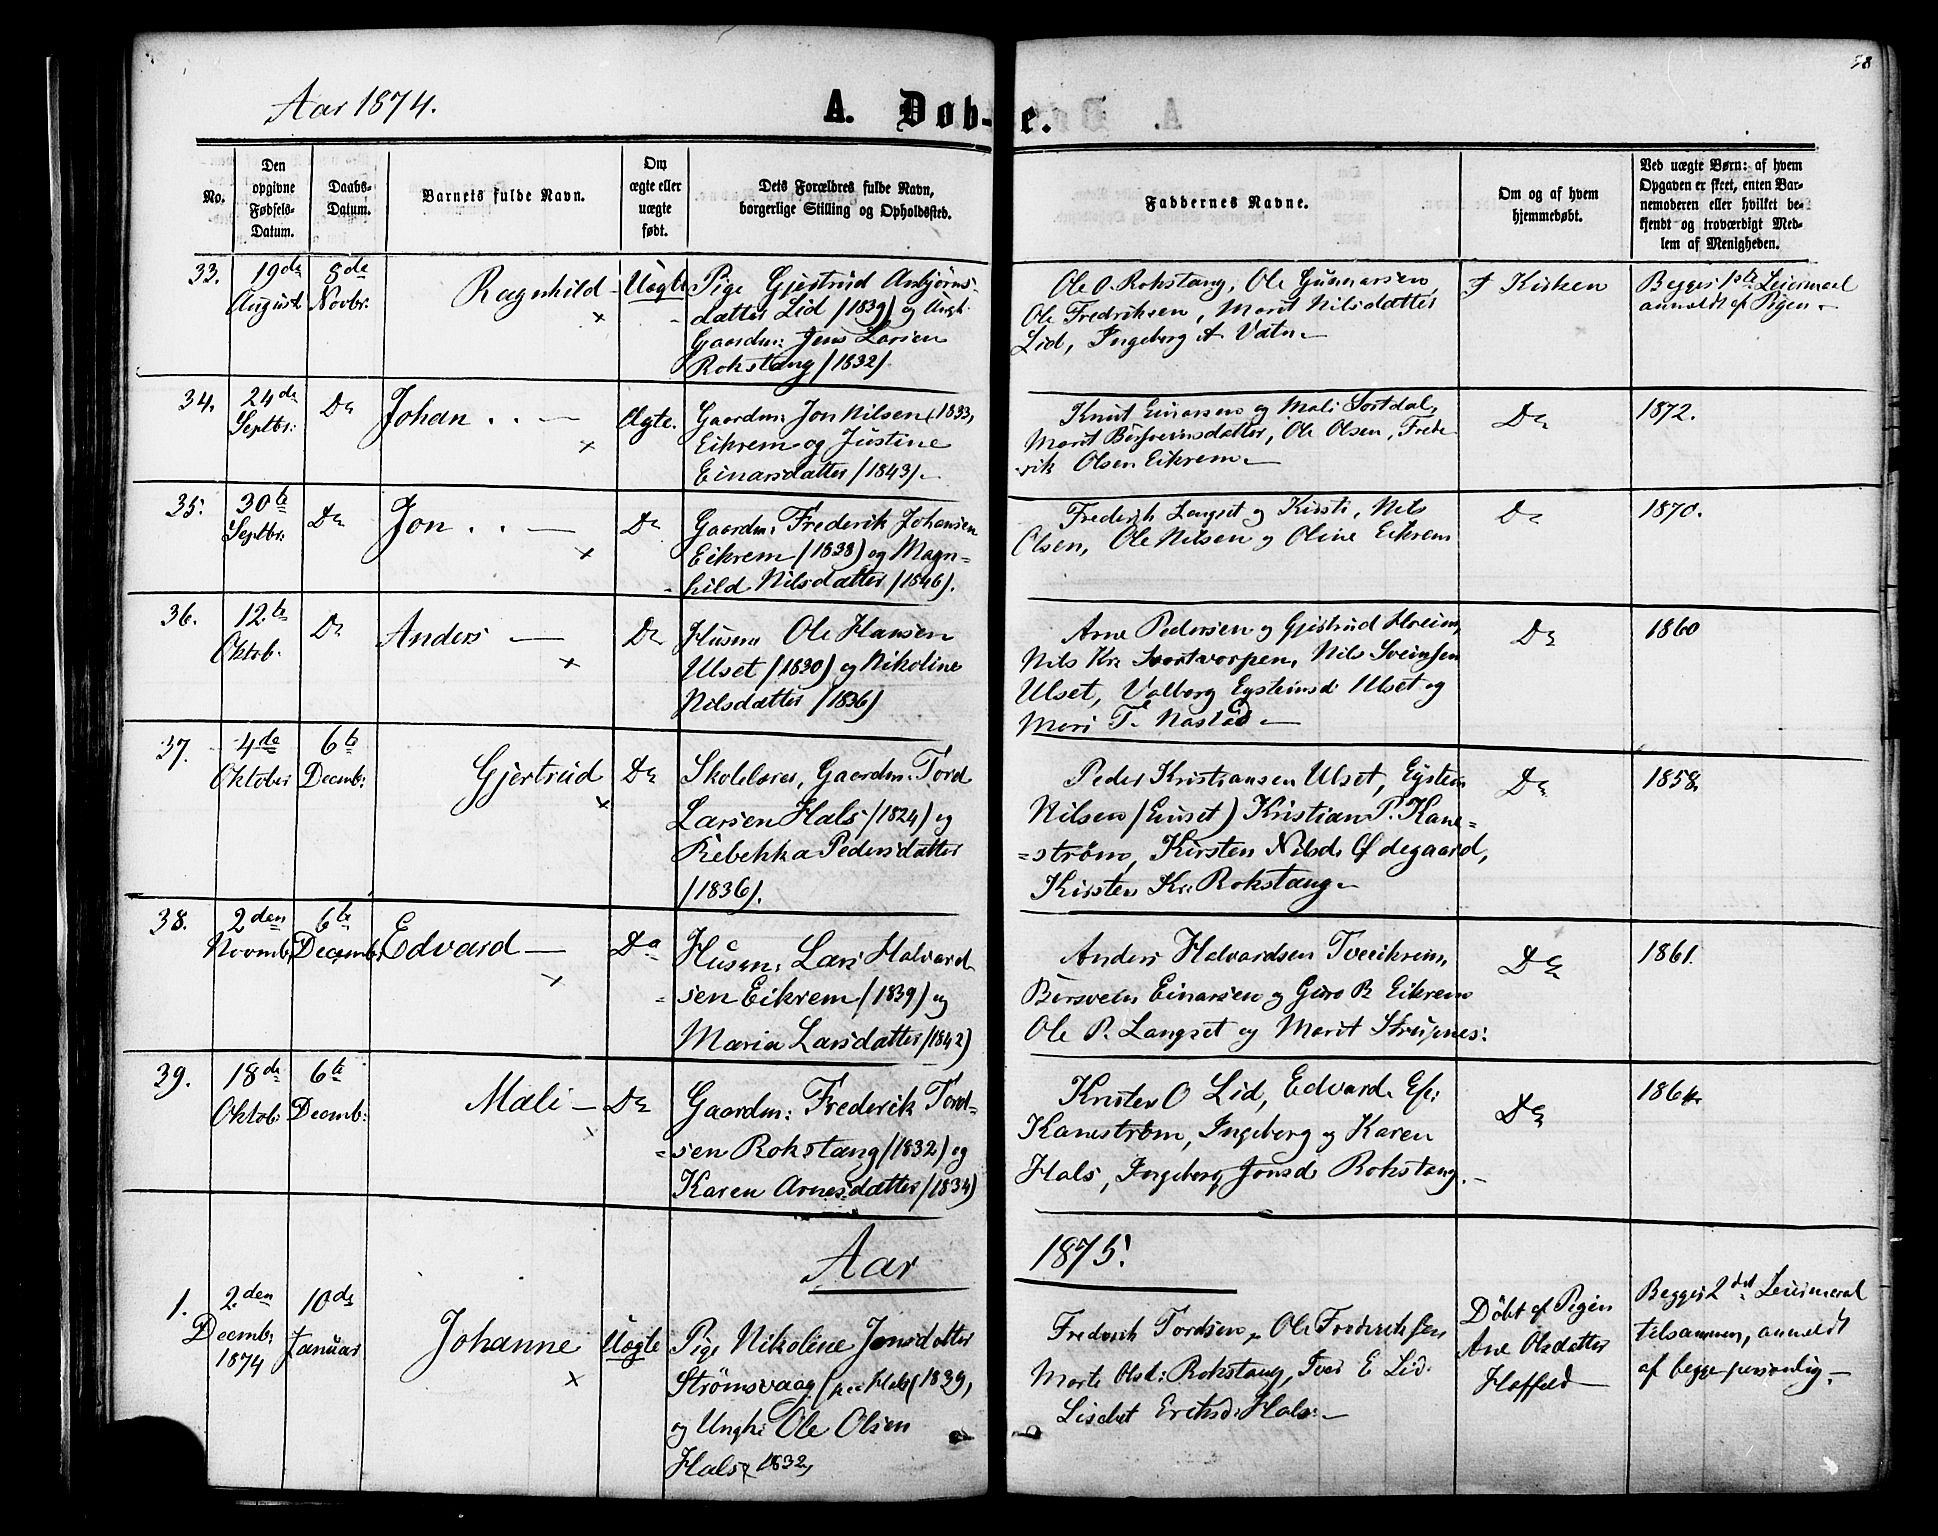 Aar 1874.
A. Døb-e.
58
No.
Den
opgivne
Fødsels-
Datum.
Daabs-
Datum.
Barnets fulde Navn.
Om
ægte eller
uægte
født.
Dets Forældres fulde Navn,
borgerlige Stilling og Opholdssted.
Faddernes Navne.
Om og af hvem
hjemmedøbt.
Ved uægte Børn: af hvem
Opgaven er skeet, enten Bar-
nemoderen eller hvilket be-
kjendt og troværdigt Med-
lem af Menigheden.
33.
19de
August
8de
Novbr.
Ragnhild
Uægte
Pige Gjertrud Anbjørns-
datter Lid (1839) og Ungk.
Gaardm: Jens Larsen
Rokstang (1832)
Ole O. Rokstang, Ole Gunnarsen,
Ole Fredriksen, Marit Nilsdatter
Lid, Ingeborg A Vatn
I Kirken
Begges 1ste Leiermaal
anmeldt af Pigen
34.
24de
Septbr:
Do
Johan
Ægte.
Gaardm: Jon Nilsen (1833,
Eikrem og Justine
Einarsdatter (1843).
Knut Einarsen og Mali Sortdal,
Marit Bersveinsdatter, Ole Olsen, Frede
rik Olsen Eikrem
Do
1872.
35.
30te
Septbr:
Do
Jon
Do
Gaardm: Frederik Johansen
Eikrem (1838) og Magn-
hild Nilsdatter (1846).
Frederik Langset og Kirsti, Nils
Olsen, Ole Nilsen og Oline Eikrem
Do
1870.
36.
12te
Oktob.
Do
Anders
Do
Husm Ole Hansen
Ulset (1830) og Nikoline
Nilsdatter (1836)
Arne Pedersen og Gjertrud
Nils Kr. Svartvorpen, Nils Sveinsen
Ulset, Valborg Eysteinsd Ulset og
Mari T. Nastad
Do
1860
37.
4de
Oktober
6te
Decemb:
Gjertrud
Do
Skolelærer, Gaardm: Tord
Larsen Hals (1824) og
Rebekka Pedersdatter
(1836).
Peder Kristiansen Ulset, Eystein
Nilsen (Eiuset) Kristian P. Kane=
=strøm, Kirsten Nilsd. Ødegaard,
Kirsten Kr: Rokstang
Do
1858.
38.
2den
Novemb.
6te
Decemb.
Edvard
Do
Husm: Lars Halvard
=sen Eikrem (1839) og
Maria Larsdatter (1842)
Anders Halvardsen Tveeikrem,
Bersvein Einarsen og Guro B. Eikrem
Ole P. Langset og Marit Strupnes:
Do
1861.
39.
18de
Oktob:
6te
Decemb:
Mali
Do
Gaardm: Frederik Tord=
=sen Rokstang (1832) og
Karen Arnesdatter (1834)
Knsten O Lid, Edvard
Kanestrøm, Ingeborg og Karen
Hals, Ingeborg Jonsd: Rokstang.
Do
1864.
Aar 1875.
1.
2den
Decemb:
1874
10de
Januar
Johanne
Uægte
Pige Nikoline Jonsdatter
Strømsvaag Hals (1839,
og Ungk: Ole Olsen
Hals, 1832,
Frederik Tordsen, Ole Frederiksen
Marte Olsd: Rokstang, Tver E Lid.
Lisebet Eriksd: Hals.
Døbt af Pigen
Ane Olsdatter
Hoffeld
Begges 2det Leiermaal
tilsammen, anmeldt
af begge personlig.